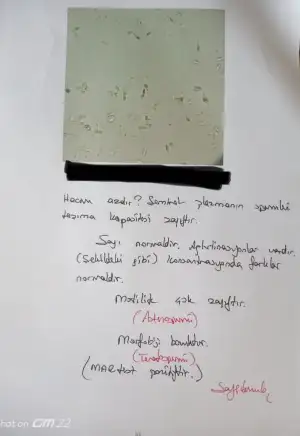 Hacim azdır? Seminal plazmanın spermleri
taşıma kapasitesi zayıftır.
Sayı normaldir. Aglütinasyonlar vardır.
(Şekildeki gibi) konsantrasyonda farklılar
normaldir.
Motilite çok zayıftır.
(Astenospermi)
Morfoloji bozuktur.
(Teratospermi)
(MAR test pozitiftir.)
hot on CM 22